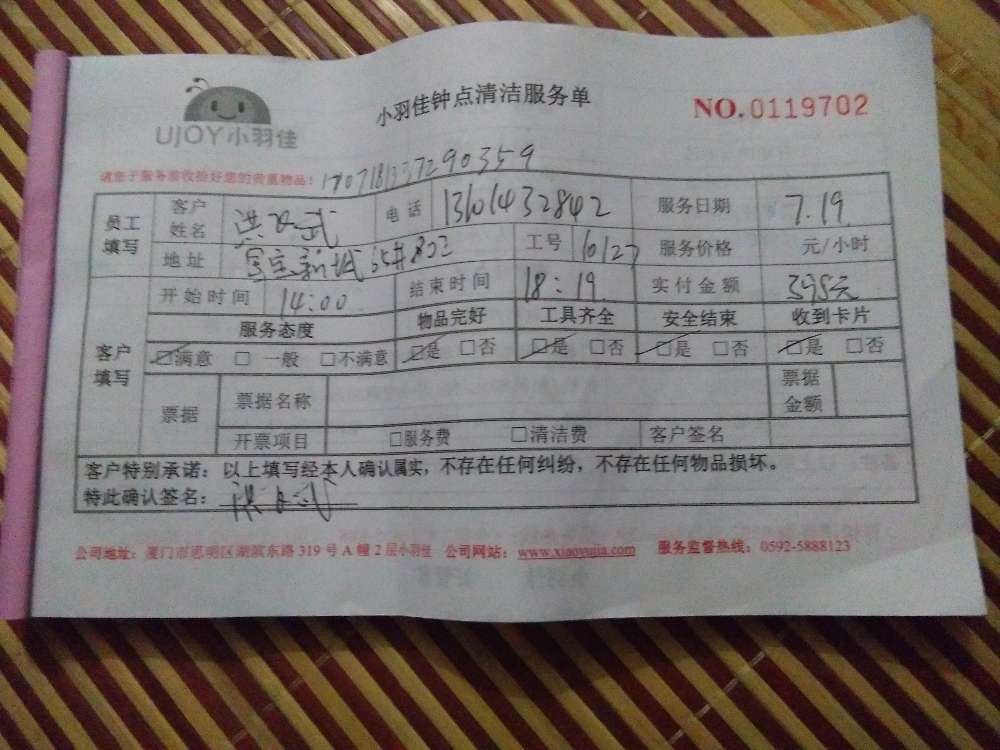 UJOY小羽佳
小羽佳钟点清洁服务单
NO.0119702
请您于服务前收检好您的贵重物品!
员工填写 客户姓名 电话 13101432842 服务日期 7.19
地址 工号 10127 服务价格 元/小时
客户填写 开始时间 14:00 结束时间 18:19 实付金额 398元
服务态度 物品完好 工具齐全 安全结束 收到卡片
□满意 □ 一般 □不满意 □是 □否 □是 □否 □是 □否 □是 □否
票据 票据名称 票据金额
开票项目 □服务费 □清洁费 客户签名
客户特别承诺：以上填写经本人确认属实，不存在任何纠纷，不存在任何物品损坏。
特此确认签名：
公司地址：厦门市思明区湖滨东路 319 号 A 幢 2 层小羽佳 公司网站：www.xiaoyujia.com 服务监督热线：0592-5888123